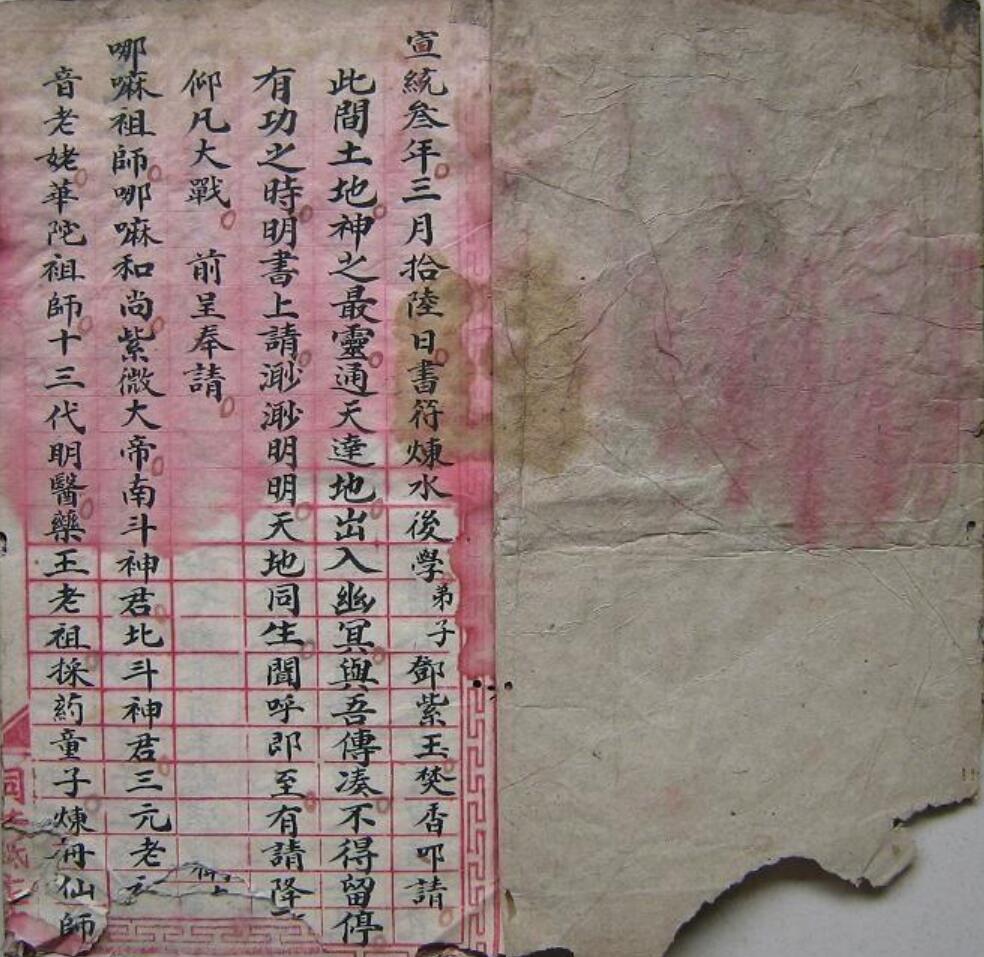 宣統叁年三月拾陸日書符煉水後學弟子鄧紫玉焚香叩請
此間土地神之最靈通天達地出入幽冥與吾傳奏不得留停
有功之時明書上請渺渺明明天地同生聞呼即至有請降
仰凡大戰　前呈奉請
哪嘛祖師哪嘛和尚紫微大帝南斗神君北斗神君三元老
音老姥華陀祖師十三代明醫藥王老祖採葯童子煉丹仙師